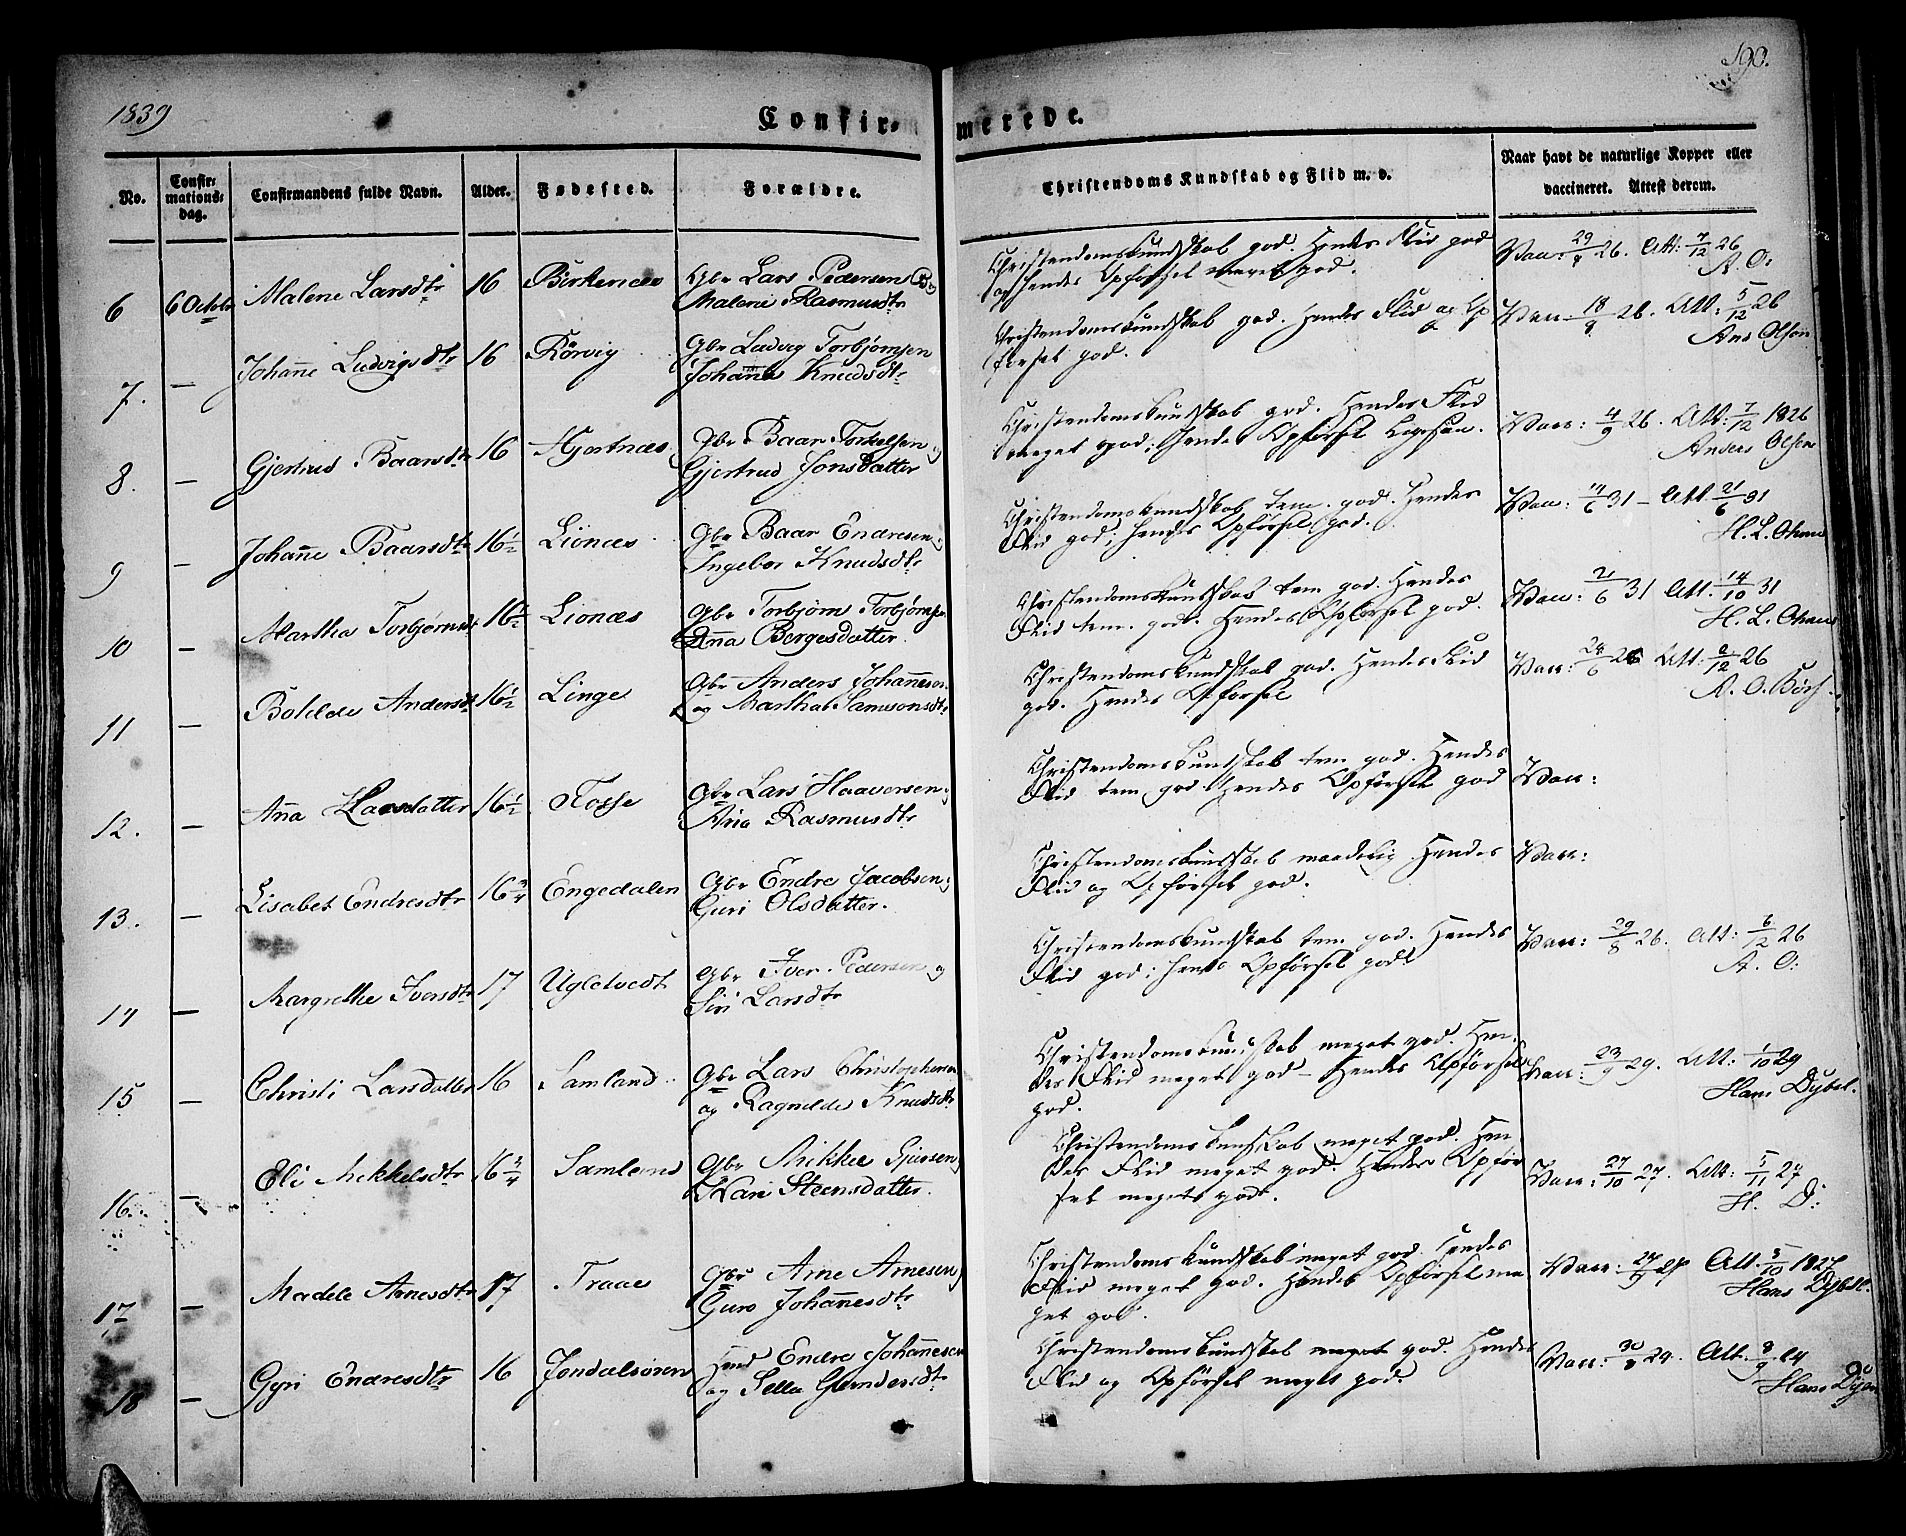 1839
190.
Confir-
merede.
No.
Confir-
mations-
dag.
Confirmandens fulde Navn.
Alder.
Fødested.
Forældre.
Christendoms Kundskab og Flid m. v.
Naar havt de naturlige Kopper eller
vaccineret. Attest derom.
6 6 Octbr Malene Larsdtr 16 Birkenæs Gbr Lars Pedersen og
Malene Rasmusdtr
Christendomskundskab god. Hendes Flid god
og hendes Opførsel meget god.
Vacc: 29/9 26. Att: 7/12 26
A. O:
7. — Johañe Ludvigsdtr 16 Rörvig Gbr Ludvig Torbjørnsen
Johañe Knudsdtr
Christendomskundskab god. Hendes Flid og Op
førsel god.
Vacc 18/9 26. Att: 5/12 26
Ans Olson
8. — Gjertrud Baarsdtr 16 Hjertnæs Gbr Baar Torkelsen og
Gjertrud Jonsdatter
Christendomskundskab god. Hendes Flid
meget god; hendes Opførsel
Vacc: 4/9 26. Att: 7/12 1826
Anders Olsen
9 — Johañe Baarsdtr 16½ Lionæs Gbr Baar Endresen og
Ingebor Knudsdtr
Christendomskundskab tem. god. Hendes
Flid god; hendes Opførsel god.
Vacc: 14/6 31 — Att 21/6 31
H. L.
10 — Martha Torbjørnsdt 16½ Lionæs Gbr Torbjørn Torbjørnsen
Aña Børgesdatter.
Christendomskundskab tem god. Hendes
Flid tem. god. Hendes Opførsel god.
Vacc: 21/6 31 Att. 14/10 31
H. L.
11 — Bohilde Andersdt 16½ Linge Gbr Anders Johañesen
og Martha Samsonsdtr
Christendomskundskab god. Hendes Flid
god. Hendes Opførsel
Vacc: 24/6 26 Att: 2/12 26
A. O. Börs
12. — Aña Larsdatter 16½ Fosse Gbr Lars Haaversen og
Aña Rasmusdtr
Christendomskundskab tem god. Hendes
Flid tem god Hendes Opførsel god
Vacc:
13. — Lisabet Endresdtr 16¾ Engedalen Gbr Endre Jacobsen og
Guri Olsdatter.
Christendomskundskab maadelig Hendes
Flid og Opførsel god.
Vacc:
14 — Margrethe Iversdtr 17 Ugletvedt Gbr Iver Pedersen og
Siri Larsdtr
Christendomskundskab tem god. Hendes
Flid god; hendes Opførsel godt
Vacc: 29/8 26. Att: 6/12 26
A. O:
15 — Christi Larsdatter 16 Samland Gbr Lars Christophersen
og Ragnilde Knudsdtr
Christendomskundskab meget god. Hen-
des Flid meget god — Hendes Opførsel
god.
Vacc: 23/9 29. Att: 1/10 29
Hans Dybel.
16. — Eli Mikkelsdtr 16¾ Samland Gbr Mikkel Gjørsen
Mari Steensdatter.
Christendoms Kundskab meget god. Hen
des Flid meget god. Hendes Opfør
sel meget godt.
Vacc: 27/10 27. Att: 5/11 27
H. D:
17 — Madele Arnesdtr 17 Traae Gbr Arne Arnesen
Guro Johañesdtr
Christendomskundskab meget god. Hendes
Flid meget god. Hendes Opførsel me
get god.
Vacc: 27/9 27 Att. 5/10 1827
Hans Dybel.
18 — Gyri Endresdtr 16 Jondalsören Huusmd Endre Johañesen
og Sella Gundersdtr
Christendomskundskab meget god. Hendes
Flid og Opførsel meget god.
Vacc: 30/8 24. Att. 8/9 24
Hans